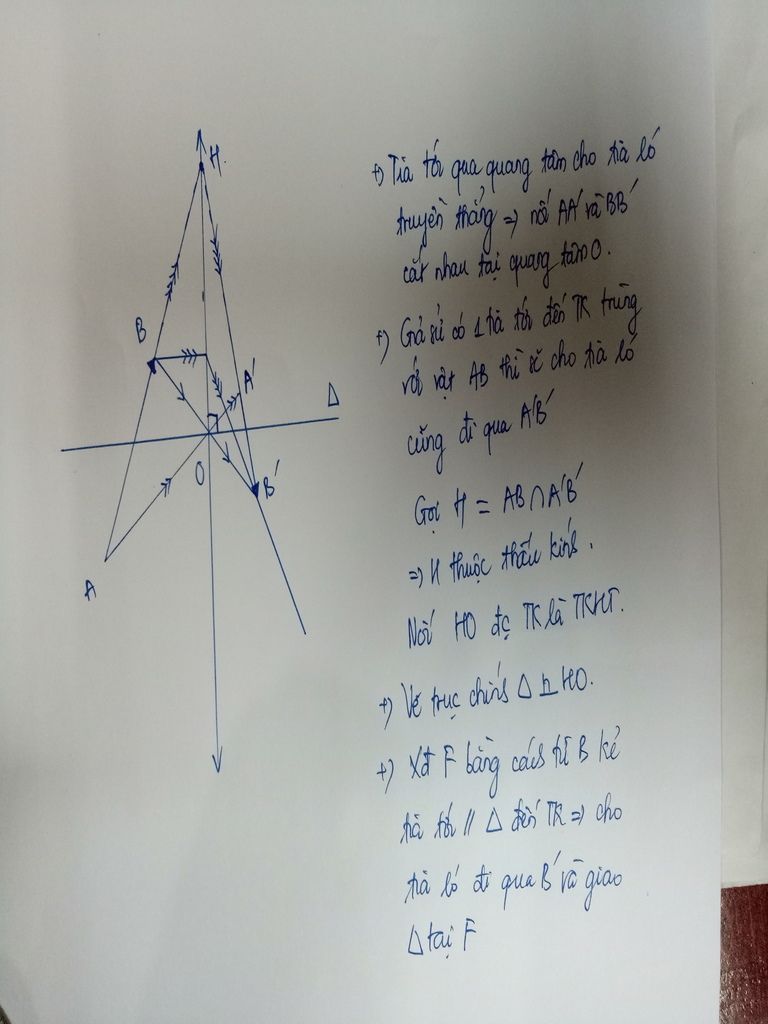 H.
B
A'
Δ
O
B'
A
+) Tia tới qua quang tâm cho tia ló
truyền thẳng => nối AA' và BB'
cắt nhau tại quang tâm O.
+) Giả sử có 1 tia tới đến TK trùng
với vật AB thì sẽ cho tia ló
cũng đi qua A'B'
Gọi H = AB ∩ A'B'
=> H thuộc thấu kính.
Nối HO đc TK là TKHT.
+) Vẽ trục chính Δ ⊥ HO.
+) Xđ F bằng cách từ B kẻ
tia tới // Δ đến TK => cho
tia ló đi qua B' và giao
Δ tại F